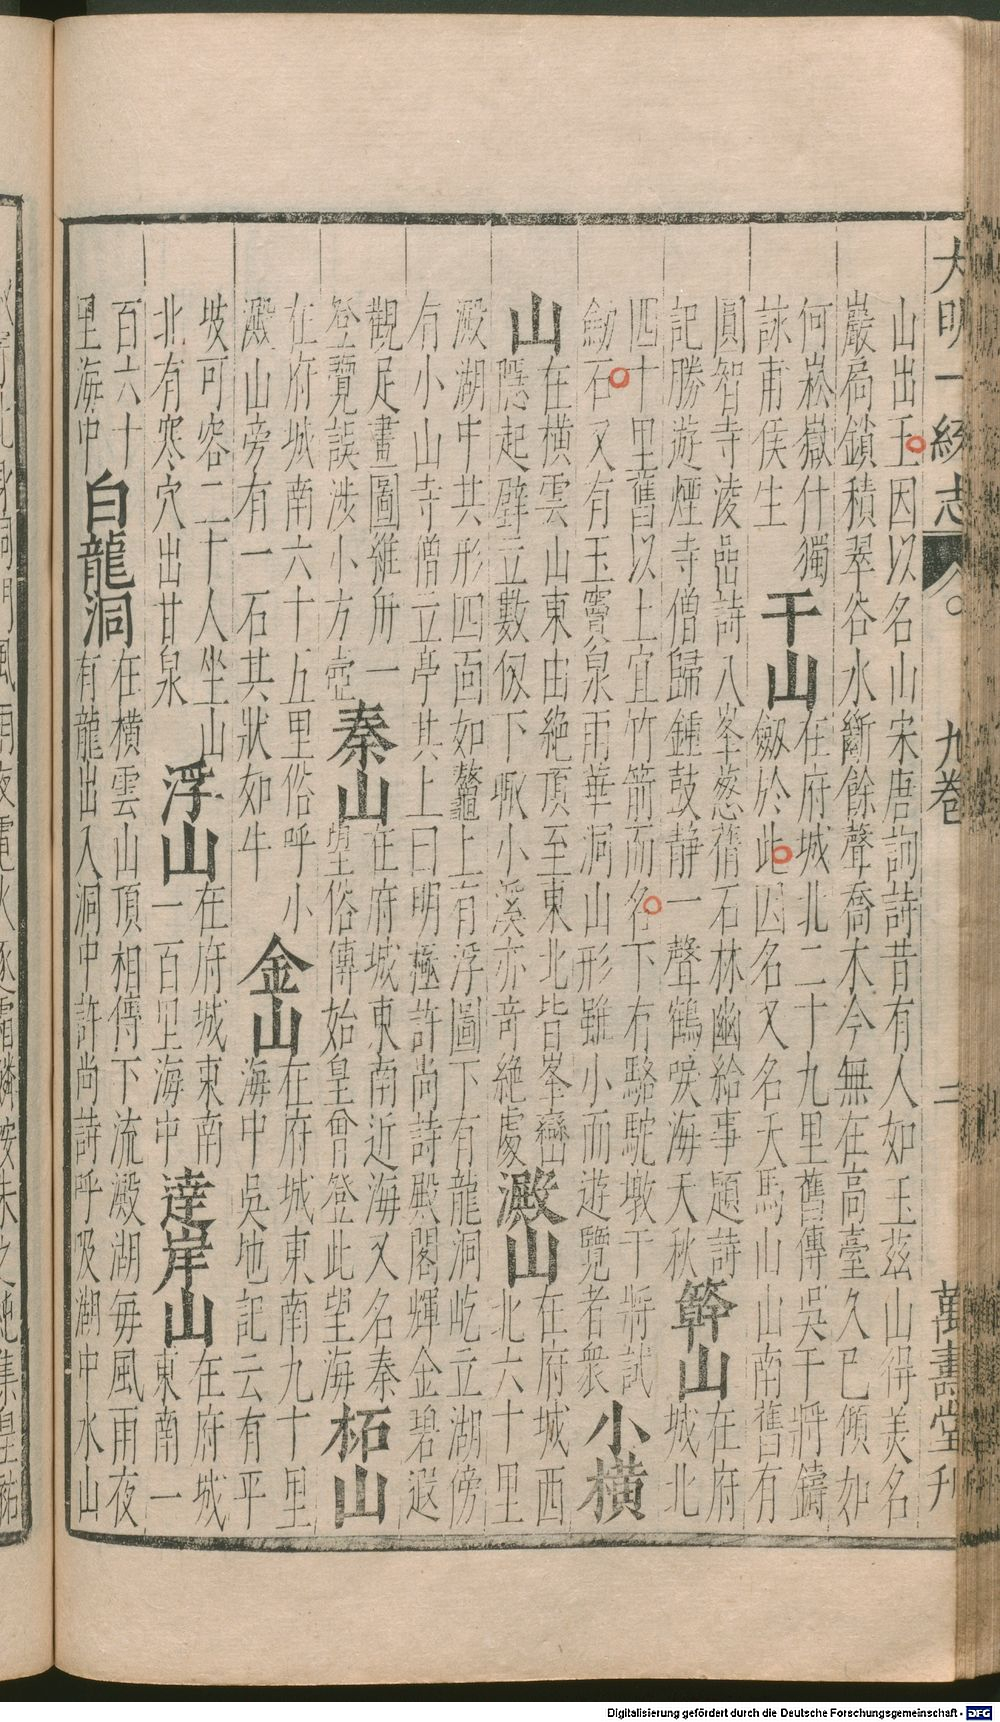 大明一統志 九卷 二 萬壽堂刊
山出玉因以名山宋唐詢詩昔有人如玉茲山得美名
巖扃鎖積翠谷水斷餘聲喬木今無在高臺久已傾如
何崧嶽什獨
詠甫侯生
干山
在府城北二十九里舊傳吳干將鑄
劔於此因名又名天馬山山南舊有
圓智寺淩嵒詩八峯葱蒨石林幽給事題詩
記勝遊煙寺僧歸鍾鼓靜一聲鶴唳海天秋
簳山
在府
城北
四十里舊以上宜竹箭而名下有駱駝墩干將試
劔石又有玉竇泉雨華洞山形雖小而遊覽者衆
小橫
山
在橫雲山東由絶頂至東北皆峯巒
隱起壁立數仞下瞰小溪亦竒絶處
澱山
在府城西
北六十里
澱湖中其形四面如鼇上有浮圖下有龍洞屹立湖傍
有小山寺僧立亭其上曰明極許尚詩殿閣輝金碧遐
觀足畫圖維舟一
登覽誤涉小方壺
秦山
在府城東南近海又名秦
望俗傳始皇曾登此望海
柘山
在府城南六十五里俗呼小
澱山旁有一石其狀如牛
金山
在府城東南九十里
海中吳地記云有平
坡可容二十人坐山
北有寒穴出甘泉
浮山
在府城東南
一百里海中
達岸山
在府城
東南一
百六十
里海中
白龍洞
在橫雲山頂相傳下流澱湖每風雨夜
有龍出入洞中許尚詩呼吸湖中水山
Digitalisierung gefördert durch die Deutsche Forschungsgemeinschaft - DFG